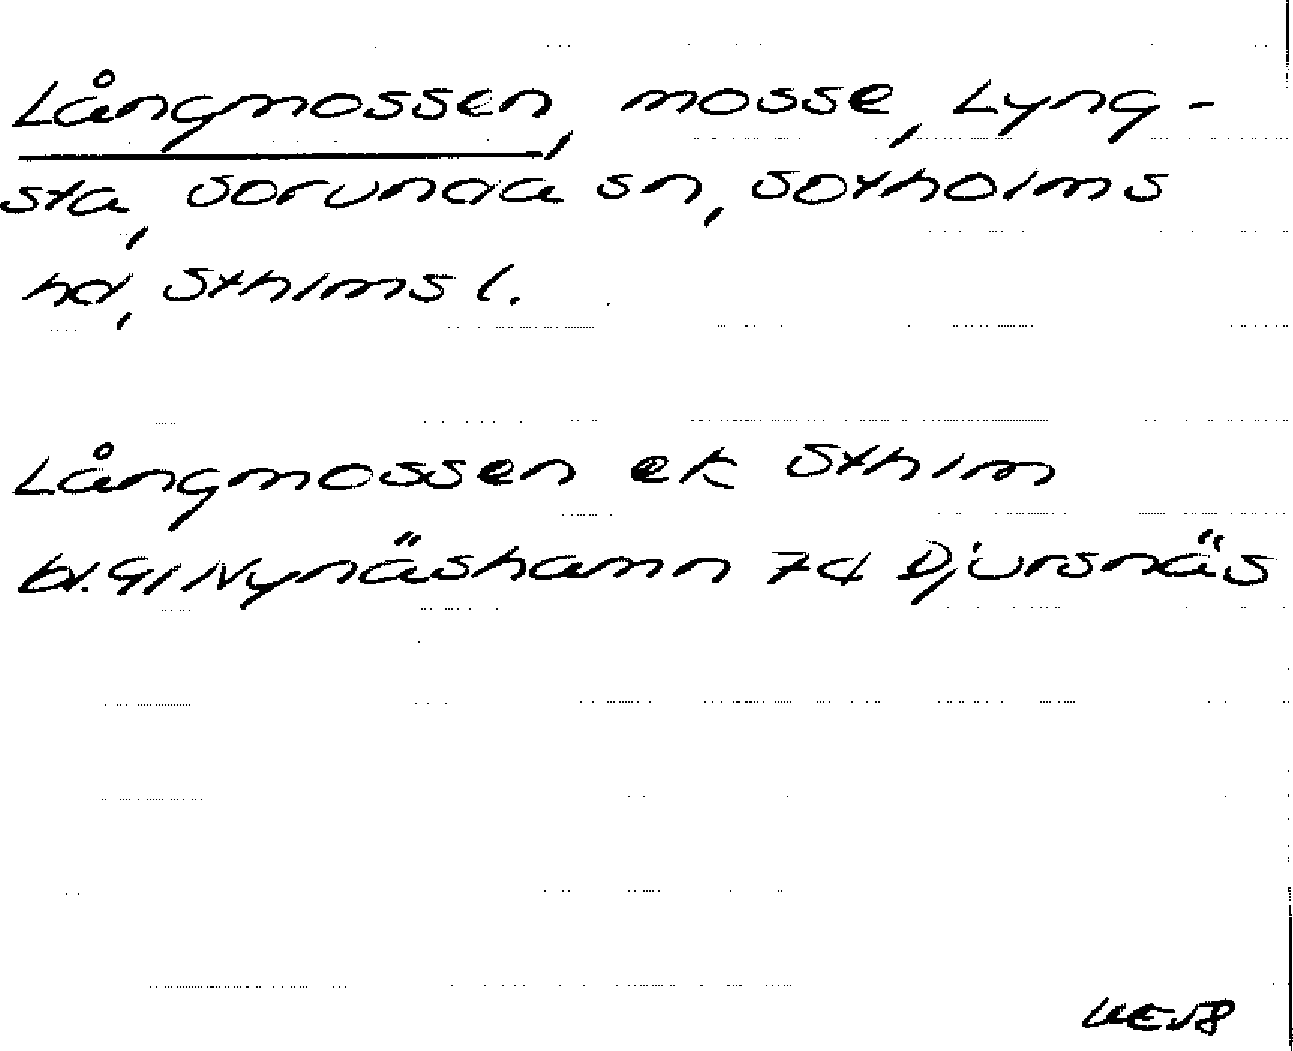 Långmossen, mosse, Lyng-
sta, Sorunda sn, Sotholms
hd, Sthlms l.
Långmossen ek Sthlm
bl. 91 Nynäshamn 7d Djursnäs